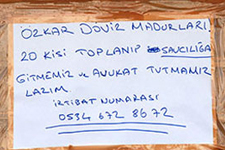 ÖZKAR DÖVİZ MAĞDURLARI
20 KİŞİ TOPLANIP SAVCILIĞA
GİTMEMİZ VE AVUKAT TUTMAMIZ
LAZIM
İRTİBAT NUMARASI
0534 672 86 72